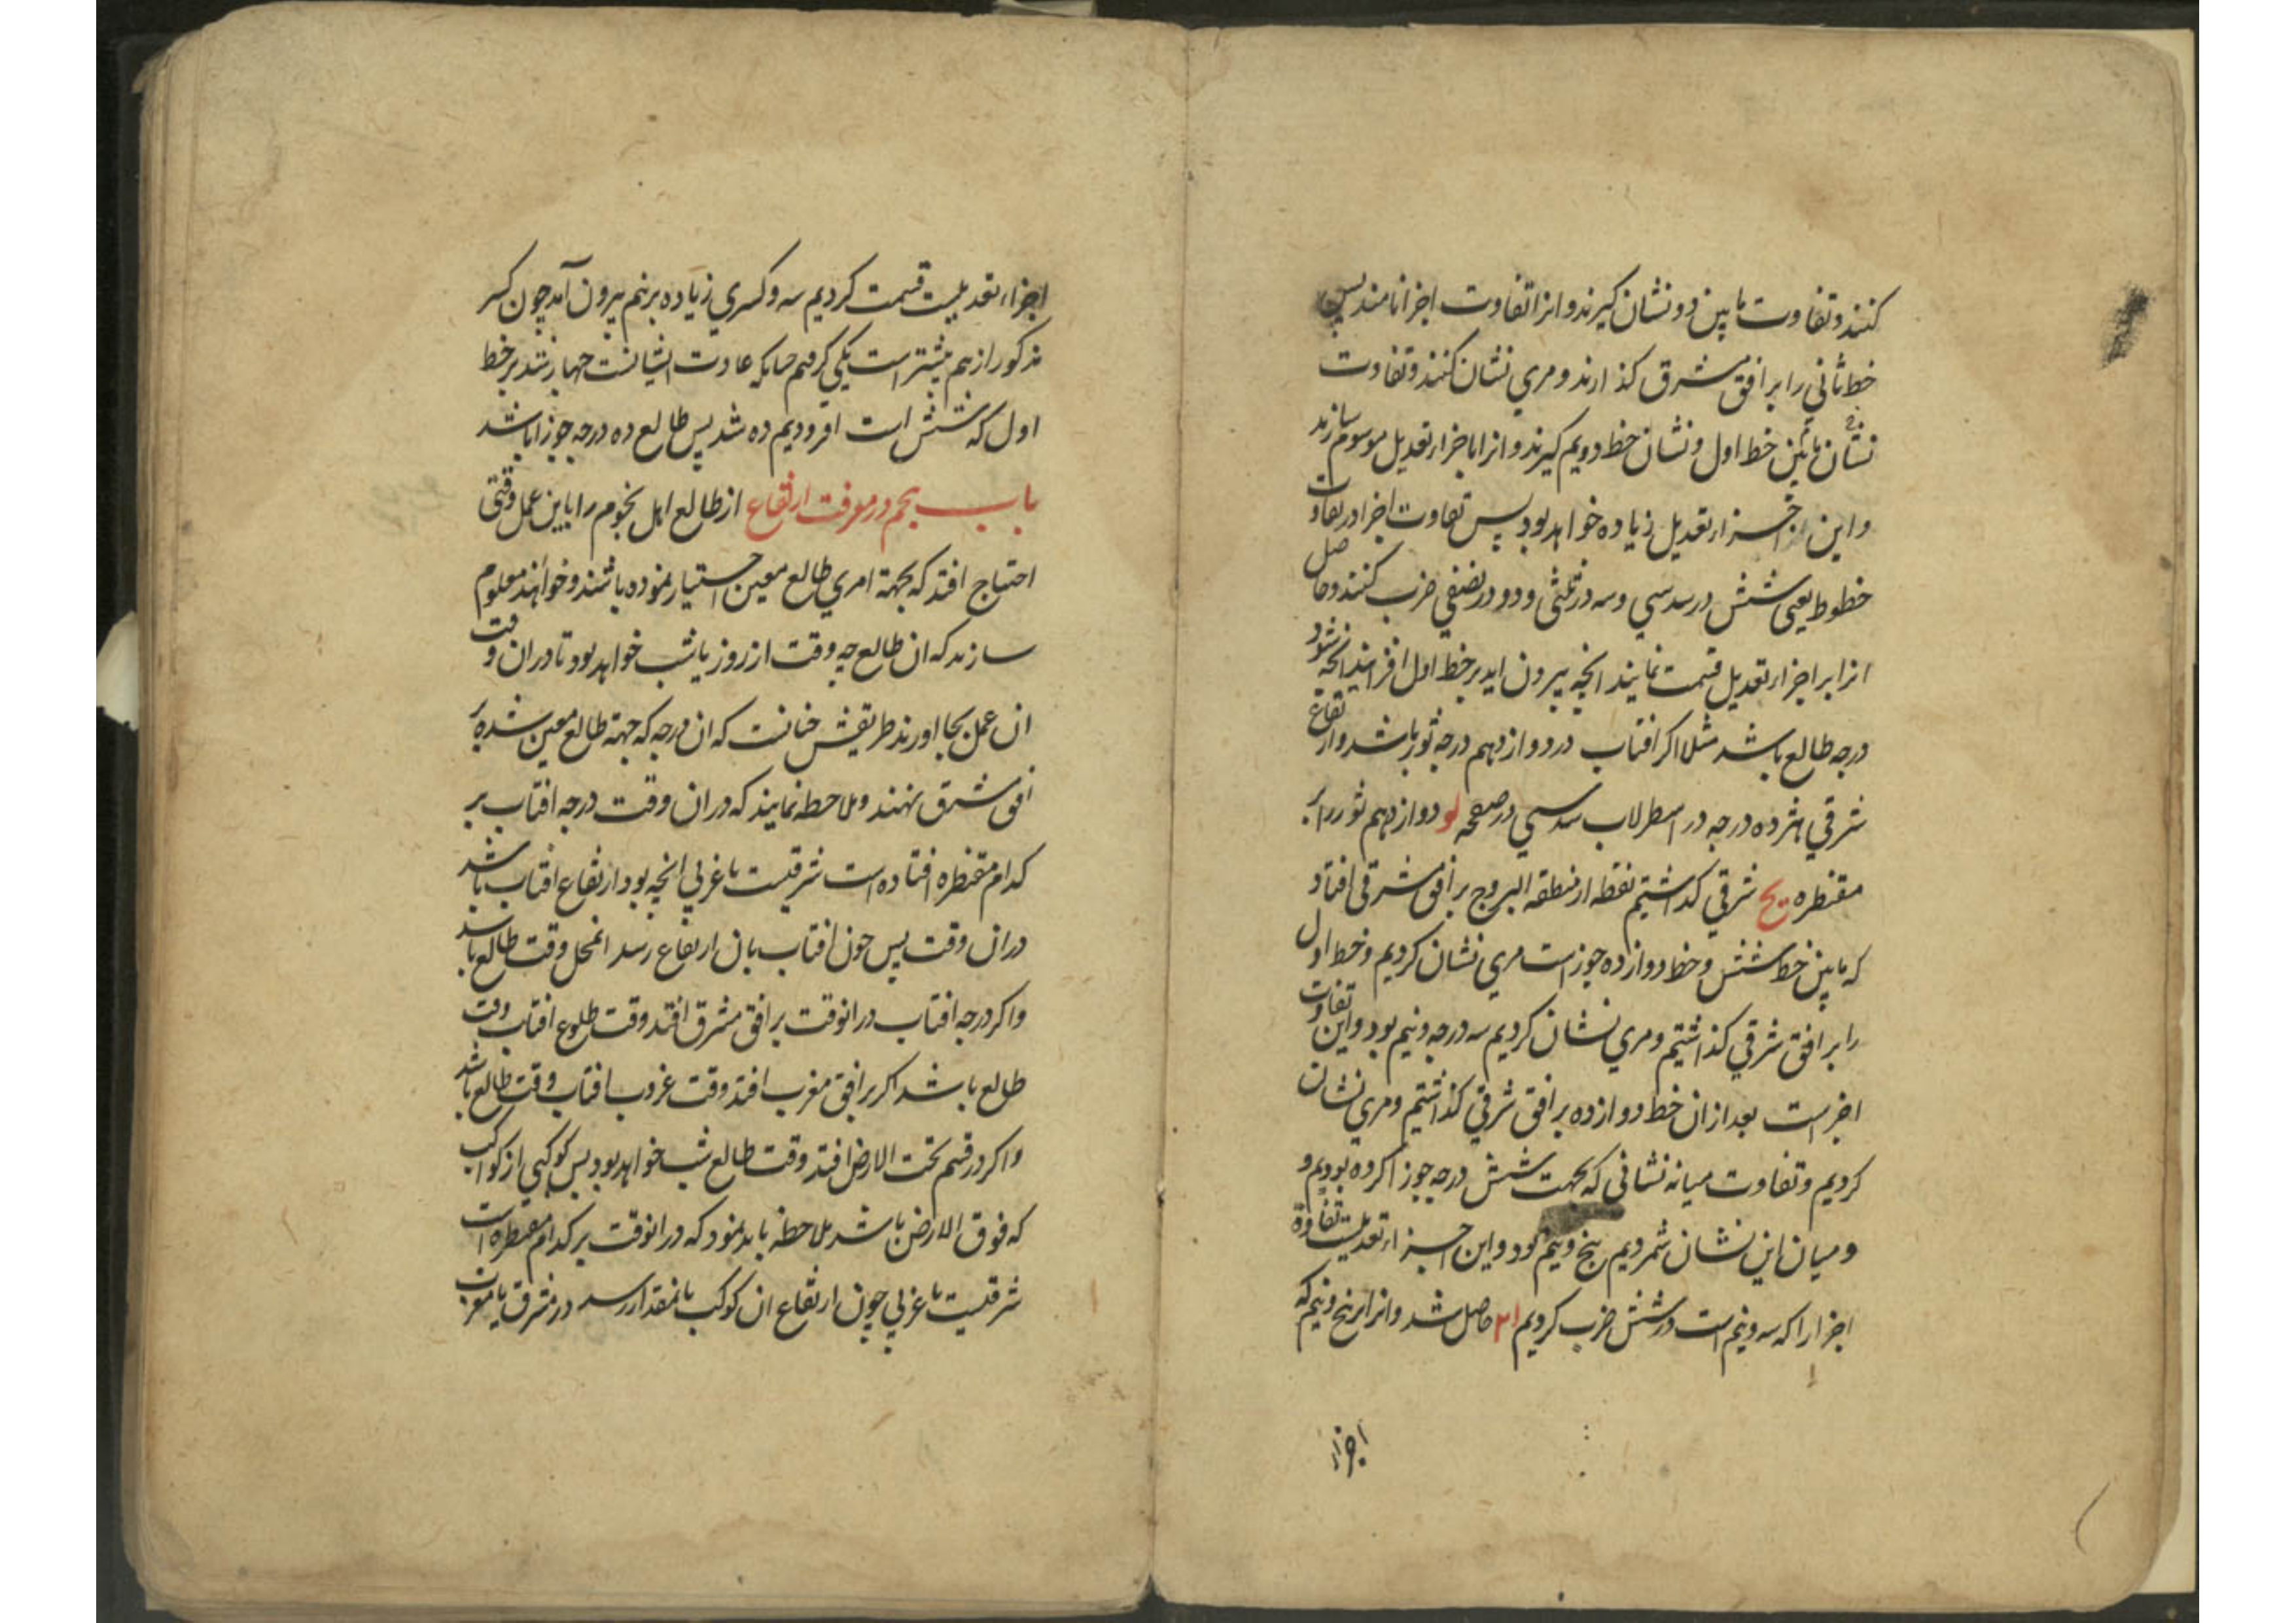 کنند و تفاوت مابین دو نشان گیرند و انرا تفاوت اجزا نامند پس
خط ثانی را بر افق مشرق گذارند و مری نشان کنند و تفاوت
نشان مابین خط اول و نشان خط دویم گیرند و انرا باجزاء تعدیل موسوم سازند
و این اجزاء تعدیل زیاده خواهد بود پس تفاوت اجزا در تفاوت
خطوط یعنی شش در سدسی و سه در ثلثی و دو در نصفی ضرب کنند و حاصل
انرا بر اجزاء تعدیل قسمت نمایند انچه بیرون اید بر خط اول افزایند انچه شود
درجه طالع باشد مثلا اکر افتاب در دوازدهم درجه ثور باشد و ارتفاع
شرقی هژده درجه در اسطرلاب سدسی در صفحه لو دوازدهم ثور را بر
مقنطره یح شرقی کذاشتیم نقطه از منطقه البروج بر افق مشرقی افتاد
که مابین خط شش و خط دوازده جوزاست مری نشان کردیم و خط اول
را بر افق شرقی کذاشتیم و مری نشان کردیم سه درجه و نیم بود و این تفاوت
اجزاست بعد از ان خط دوازده بر افق شرقی کذاشتیم و مری نشان
کردیم و تفاوت میانه نشانی که بجهت شش درجه جوزا کرده بودیم و
و میان این نشان شمردیم پنج و نیم بود و این اجزاء تعدیلست تفاوة
اجزا را که سه و نیم است در شش ضرب کردیم ۲۱ حاصل شد و انرا بر پنج و نیم که
اجزاء
اجزاء تعدیلست قسمت کردیم سه و کسری زیاده بر نیم بیرون آمد چون کسر
مذکور از نیم بیشتر است یکی کرفتیم چنانکه عادت ایشانست چهار شد بر خط
اول که شش است افزودیم ده شد پس طالع ده درجه جوزا باشد
باب پنجم در معرفت ارتفاع از طالع اهل نجوم را باین عمل وقتی
احتیاج افتد که بجهة امری طالع معین اختیار نموده باشند و خواهند معلوم
سازند که ان طالع چه وقت از روز یا شب خواهد بود تا در ان وقت
ان عمل بجا اورند طریقش چنانست که ان درجه که جهة طالع معین شده بر
افق مشرق نهند و ملاحظه نمایند که در ان وقت درجه افتاب بر
کدام مقنطره افتاده است شرقیست یا غربی انچه بود ارتفاع افتاب باشد
در ان وقت پس چون افتاب بان ارتفاع رسد انمحل وقت طالع باشد
و اکر درجه افتاب در انوقت بر افق مشرق افتد وقت طلوع افتاب وقت
طالع باشد اکر بر افق مغرب افتد وقت غروب افتاب وقت طالع باشد
و اکر در قسم تحت الارض افتد وقت طالع شب خواهد بود پس کوکبی از کواکب
که فوق الارض باشد ملاحظه باید نمود که در انوقت بر کدام مقنطره است
شرقیست یا غربی چون ارتفاع ان کوکب بانمقدار رسد در مشرق یا مغرب